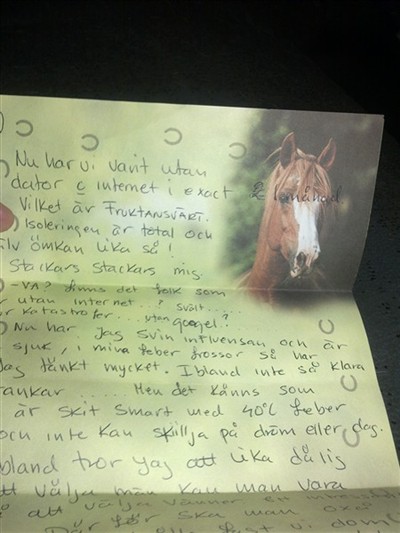 Nu har vi varit utan
dator o internet i exact 2
Vilket är FRUKTANSVÄRT.
Isoleringen är total och
älv ömkan lika så!
Stackars stackars mig.
-VA? finns det folk som
r utan internet..? svält....
r katastrofer... utan google?
Nu har jag svin influensan och är
sjuk, i mina feber frossor så har
Jag tänkt mycket. Ibland inte så klara
ankar ...... Men det känns som
är skit smart med 40°C feber
och inte kan skillja på dröm eller dag.
bland tror jag att lika dålig
tt välja män kan man vara
å att välja vänner ett
Där för ska man oxå